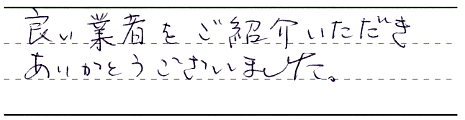 良い業者をご紹介いただき
ありがとうございました。